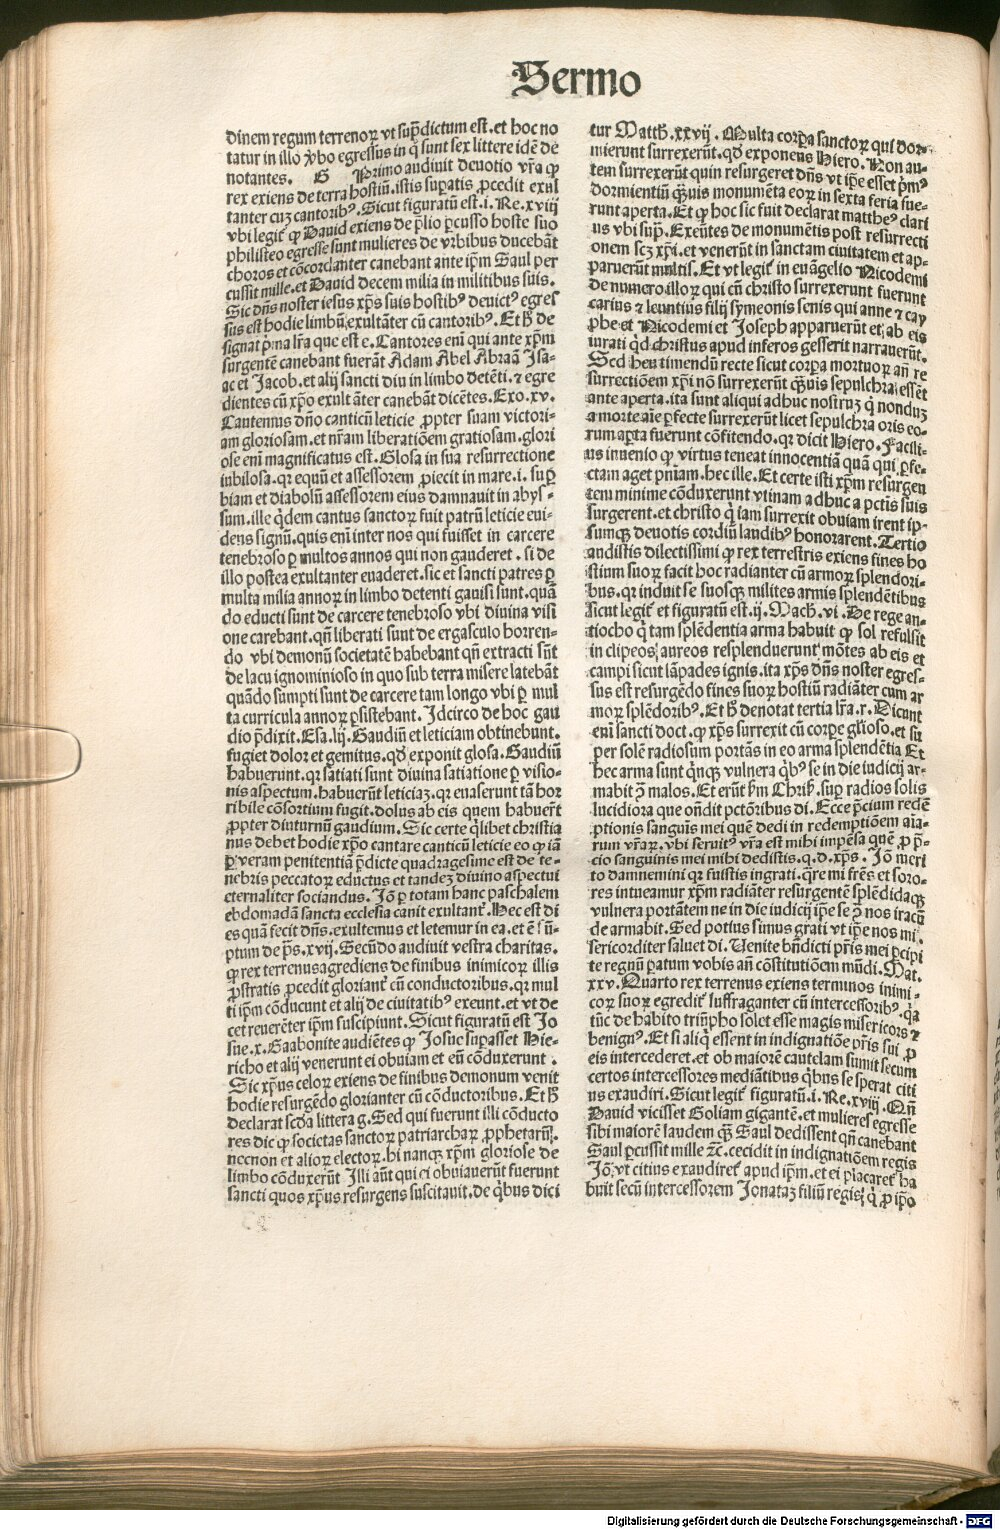 Sermo
dinem regum terrenoꝝ vt sup̄dictum est.et hoc no
tatur in illo ꝟbo egressus in q̊ sunt sex littere idē de
notantes. G Primo audiuit deuotio vr̄a ꝙ
rex exiens de terra hostiū.istis suꝑatis ꝓcedit exul
tanter cuz cantoribꝰ.Sicut figuratū est.i.Re.xviij
vbi legit᷑ ꝙ Dauid exiens de p̄lio ꝑcusso hoste suo
philisteo egresse sunt mulieres de vrbibus ducebāt
choros et cōcordanter canebant ante ip̄m Saul per
cussit mille.et Dauid decem milia in militibus suis.
Sic dn̄s noster iesus xp̄s suis hostibꝰ deuictꝰ egres
sus est hodie limbū,exultāter cū cantoribꝰ.Et ħ de
signat p̄ma lr̄a que est e.Cantores eni᷑ qui ante xp̄m
surgentē canebant fuerāt Adam Abel Abraā Isa⸗
ac et Jacob.et alij sancti diu in limbo detēti.⁊ egre
dientes cū xp̄o exultāter canebāt dicētes.Exo.xv.
Cantemus dn̄o canticū leticie ꝓpter suam victori⸗
am gloriosam.et nr̄am liberatiōem gratiosam.glori
ose eni᷑ magnificatus est.Glosa in sua resurrectione
iubilosa.qꝛ equū et assessorem ꝓiecit in mare.i.suꝑ
biam et diabolū assessorem eius damnauit in abys⸗
sum.ille q̇dem cantus sanctoꝝ fuit patrū leticie eui⸗
dens signū.quis eni᷑ inter nos qui fuisset in carcere
tenebroso ꝑ multos annos qui non gauderet.si de
illo postea exultanter euaderet.sic et sancti patres ꝑ
multa milia annoꝝ in limbo detenti gauisi sunt.quā
do educti sunt de carcere tenebroso vbi diuina visi
one carebant.qn̄ liberati sunt de ergasculo horren⸗
do vbi demonū societatē habebant qn̄ extracti sūt
de lacu ignominioso in quo sub terra misere latebāt
quādo sumpti sunt de carcere tam longo vbi ꝑ mul
ta curricula annoꝝ ꝑsistebant.Idcirco de hoc gau
dio p̄dixit.Esa.lij.Gaudiū et leticiam obtinebunt.
fugiet dolor et gemitus.qđ exponit glosa.Gaudiū
habuerunt.qꝛ satiati sunt diuina satiatione ꝑ visio⸗
nis aspectum.habuerūt leticiaz.qꝛ euaserunt tā hor
ribile cōsortium fugit.dolus ab eis quem habuer̄t
ꝓpter diuturnū gaudium.Sic certe q̇libet christia
nus debet hodie xp̄o cantare canticū leticie eo ꝙ iā
ꝑ veram penitentiā p̄dicte quadragesime est de te⸗
nebris peccatoꝝ eductus et tandez diuino aspectui
eternaliter sociandus.Jō ꝑ totam hanc paschalem
ebdomadā sancta ecclesia canit exultant᷑.Hec est di
es quā fecit dn̄s.exultemus et letemur in ea.et ē sū⸗
ptum de p̄s.xvij.Secūdo audiuit vestra charitas.
ꝙ rex terrenus agrediens de finibus inimicoꝝ illis
ꝓstratis ꝓcedit gloriant᷑ cū conductoribus.qꝛ mul
ti ip̄m cōducunt et alij de ciuitatibꝰ exeunt.et vt de
cet reuerēter ip̄m suscipiunt.Sicut figuratū est Jo
sue.x.Gaabonite audiētes ꝙ Josue suꝑasset Hie⸗
richo et alij venerunt ei obuiam et eū cōduxerunt.
Sic xp̄us celoꝝ exiens de finibus demonum venit
hodie resurgēdo glorianter cū cōductoribus.Et ħ
declarat scđa littera g.Sed qui fuerunt illi cōducto
res dic ꝙ societas sanctoꝝ patriarchaꝝ ꝓphetarū.
necnon et alioꝝ electoꝝ.hi nanqꝫ xp̄m gloriose de
limbo cōduxerūt Illi aūt qui ei obuiauerūt fuerunt
sancti quos xp̄us resurgens suscitauit.de q̇bus dici
tur Matth̄.xxvij.Multa corꝑa sanctoꝝ qui dor⸗
mierunt surrexerūt.qđ exponens Hiero.Non au⸗
tem surrexerūt quin resurgeret dn̄s vt ip̄e esset p̄mꝰ
dormientiū q̄uis monumēta eoꝝ in sexta feria fue⸗
runt aperta.Et ꝙ hoc sic fuit declarat mattheꝰ clari
us vbi sup̄.Exeūtes de monumētis post resurrecti
onem scꝫ xp̄i.et venerūt in sanctam ciuitatem et ap⸗
paruerūt multis.Et vt legit᷑ in euāgelio Nicodemi
de numero illoꝝ qui cū christo surrexerunt fuerunt
carius ⁊ leuntius filij symeonis senis qui anne ⁊ cay
phe et Nicodemi et Joseph apparuerūt et ab eis
iurati qđ christus apud inferos gesserit narrauerūt.
Sed heu timendū recte sicut corꝑa mortuoꝝ an̄ re
surrectiōem xp̄i nō surrexerūt q̄uis sepulchra essēt
ante aperta.ita sunt aliqui adhuc nostruꝫ q̇ nonduꝫ
a morte aīe ꝑfecte surrexerūt licet sepulchra oris eo⸗
rum aꝑta fuerunt cōfitendo.qꝛ dicit Hiero.Facili⸗
us inuenio ꝙ virtus teneat innocentiā quā qui ꝑfe⸗
ctam aget pn̄iam.hec ille.Et certe isti xp̄m resurgen
tem minime cōduxerunt vtinam adhuc a pctīs suis
surgerent.et christo q̇ iam surrexit obuiam irent ip⸗
sumqꝫ deuotis cordiū laudibꝰ honorarent.Tertio
audistis dilectissimi ꝙ rex terrestris exiens fines ho
stium suoꝝ facit hoc radianter cū armoꝝ splendori⸗
bus.qꝛ induit se suosqꝫ milites armis splendētibus
sicut legit᷑ et figuratū est.ij.Mach̄.vi.De rege an⸗
tiocho q̇ tam splēdentia arma habuit ꝙ sol refulsit
in clipeos aureos resplenduerunt mōtes ab eis et
campi sicut lāpades ignis.ita xp̄s dn̄s noster egres⸗
sus est resurgēdo fines suoꝝ hostiū radiāter cum ar
moꝝ splēdoribꝰ.Et ħ denotat tertia lr̄a.r.Dicunt
eni᷑ sancti doct.ꝙ xp̄s surrexit cū corꝑe gl̄ioso.et sū
per solē radiosum portās in eo arma splendētia Et
hec arma sunt q̇nqꝫ vulnera q̇bꝰ se in die iudicij ar⸗
mabit ꝯ malos.Et erūt ẜm Chriẜ.suꝑ radios solis
lucidiora que on̄dit pctōribus di.Ecce p̄cium redē
ptionis sanguis mei quē dedi in redemptiōem aīa⸗
rum vr̄aꝝ.vbi seruitꝰ vr̄a est mihi impēsa quē ꝓ p̄⸗
cio sanguinis mei mihi dedistis.q.d.xp̄s.Jō meri
to damnemini qꝛ fuistis ingrati.q̄re mi fr̄es et soro⸗
res intueamur xp̄m radiāter resurgentē splēdidaqꝫ
vulnera portātem ne in die iudicij ip̄e se ꝯ nos iracū
de armabit.Sed potius simus grati vt ip̄e nos mi⸗
sericorditer saluet di.Uenite bn̄dicti pr̄is mei ꝑcipi
te regnū ꝑatum vobis an̄ cōstitutiōem mūdi.Mat.
xxv.Quarto rex terrenus exiens terminos inimi⸗
coꝝ suoꝝ egredit᷑ suffraganter cū intercessoribꝰ.q̇a
tūc de habito triūpho solet esse magis misericors ⁊
benignꝰ.Et si aliq̇ essent in indignatiōe pr̄is sui ꝓ
eis intercederet.et ob maiorē cautelam sumit secum
certos intercessores mediātibus q̇bus se sperat citi
us exaudiri.Sicut legit᷑ figuratū.i.Re.xviij.Qn̄
Dauid vicisset Goliam gigantē.et mulieres egresse
sibi maiorē laudem q̄ꝫ Saul dedissent qn̄ canebant
Saul ꝑcussit mille ⁊c̄.cecidit in indignatiōem regis
Jō vt citius exaudiret᷑ apud ip̄m.et ei placaret᷑ ha
buit secū intercessorem Jonataz filiū regis q̇ ꝓ ip̄o
Digitalisierung gefördert durch die Deutsche Forschungsgemeinschaft - DFG